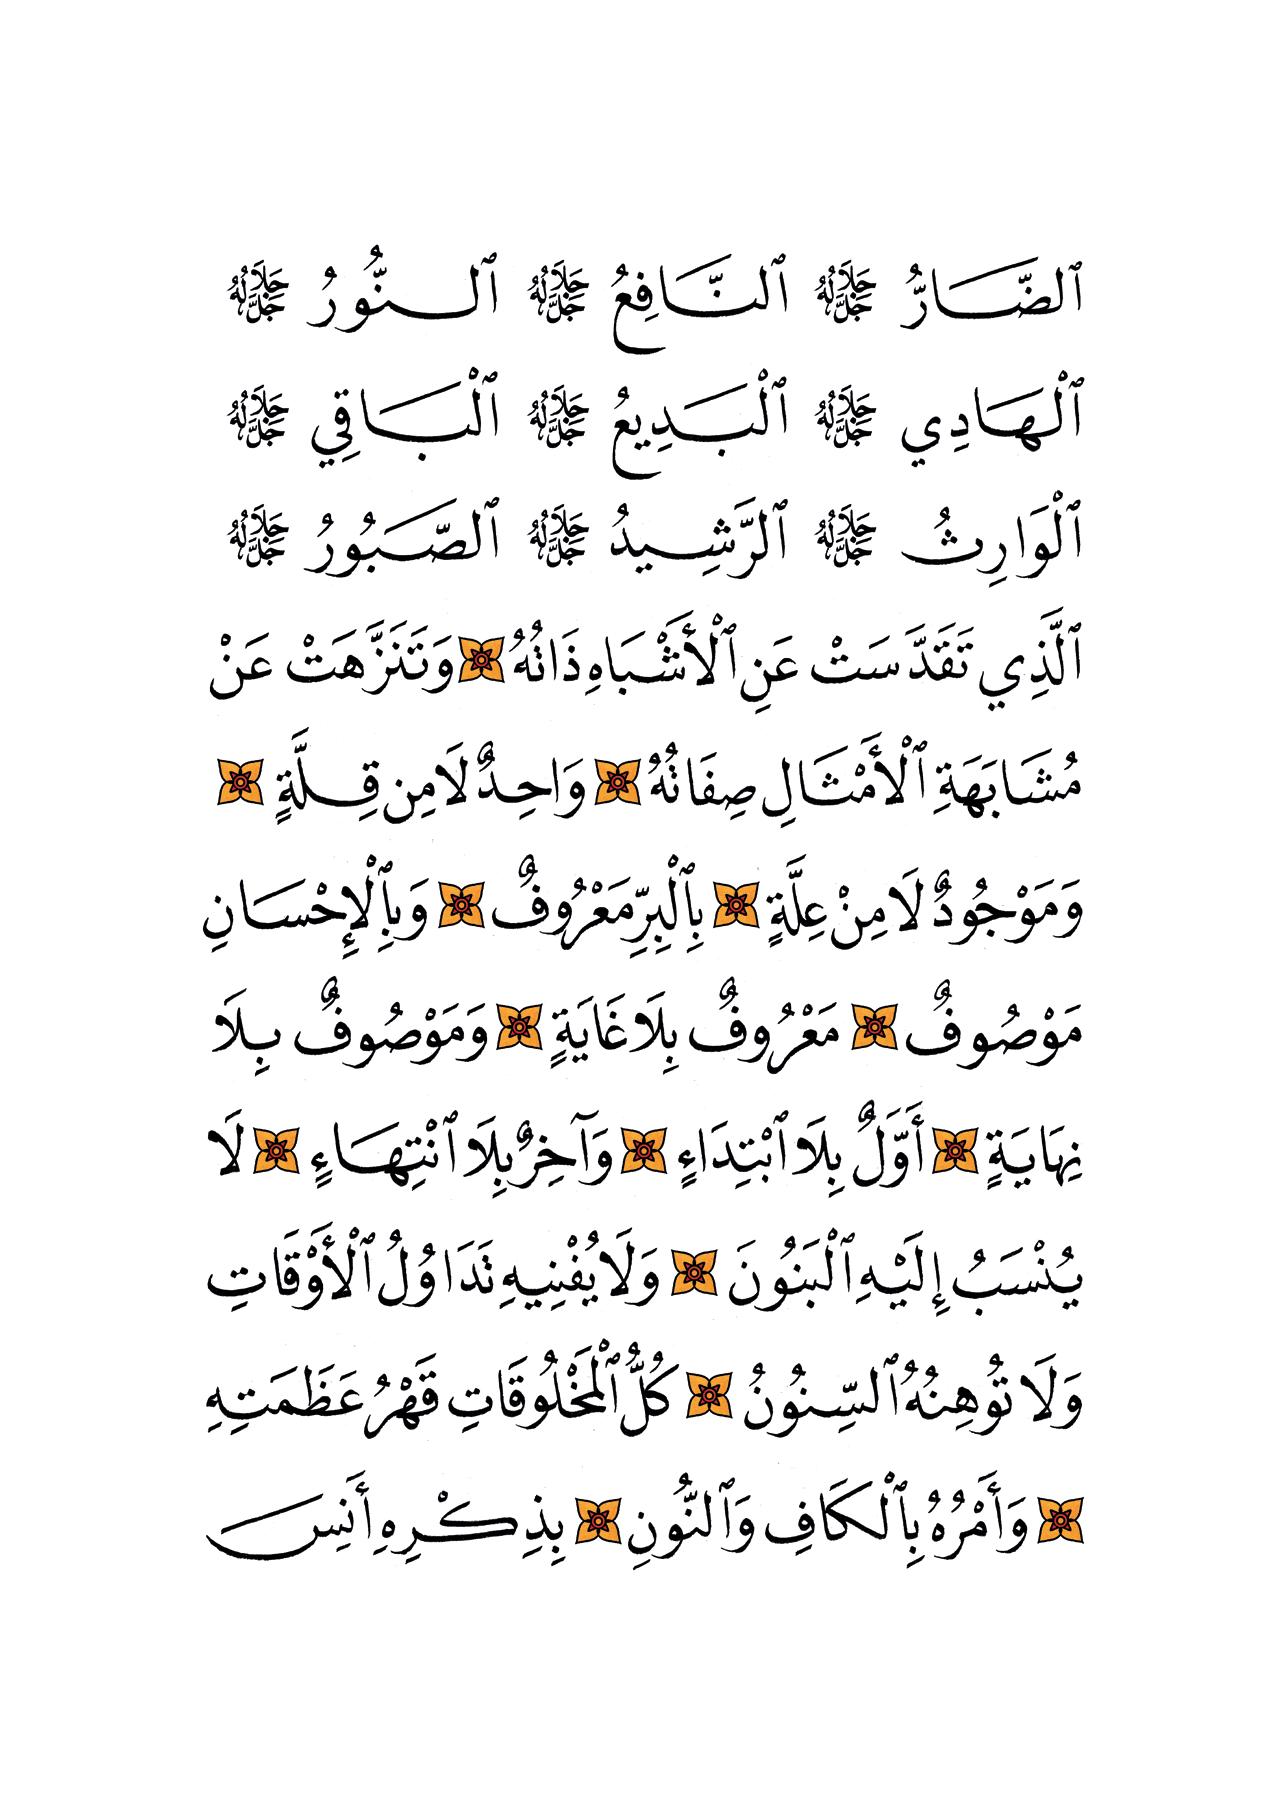 ٱلضَّارُّ ﷻ ٱلنَّافِعُ ﷻ ٱلنُّورُ ﷻ
ٱلْهَادِي ﷻ ٱلْبَدِيعُ ﷻ ٱلْبَاقِي ﷻ
ٱلْوَارِثُ ﷻ ٱلرَّشِيدُ ﷻ ٱلصَّبُورُ ﷻ
ٱلَّذِي تَقَدَّسَتْ عَنِ ٱلْأَشْبَاهِ ذَاتُهُ وَتَنَزَّهَتْ عَنْ
مُشَابَهَةِ ٱلْأَمْثَالِ صِفَاتُهُ وَاحِدٌ لَا مِن قِلَّةٍ
وَمَوْجُودٌ لَا مِنْ عِلَّةٍ بِٱلْبِرِّ مَعْرُوفٌ وَبِٱلْإِحْسَانِ
مَوْصُوفٌ مَعْرُوفٌ بِلَا غَايَةٍ وَمَوْصُوفٌ بِلَا
نِهَايَةٍ أَوَّلٌ بِلَا ٱبْتِدَاءٍ وَآخِرٌ بِلَا ٱنْتِهَاءٍ لَا
يُنْسَبُ إِلَيْهِ ٱلْبَنُونَ وَلَا يُفْنِيهِ تَدَاوُلُ ٱلْأَوْقَاتِ
وَلَا تُوهِنُهُ ٱلسِّنُونُ كُلُّ ٱلْمَخْلُوقَاتِ قَهْرُ عَظَمَتِهِ
وَأَمْرُهُ بِٱلْكَافِ وَٱلنُّونِ بِذِكْرِهِ أَنِسَ